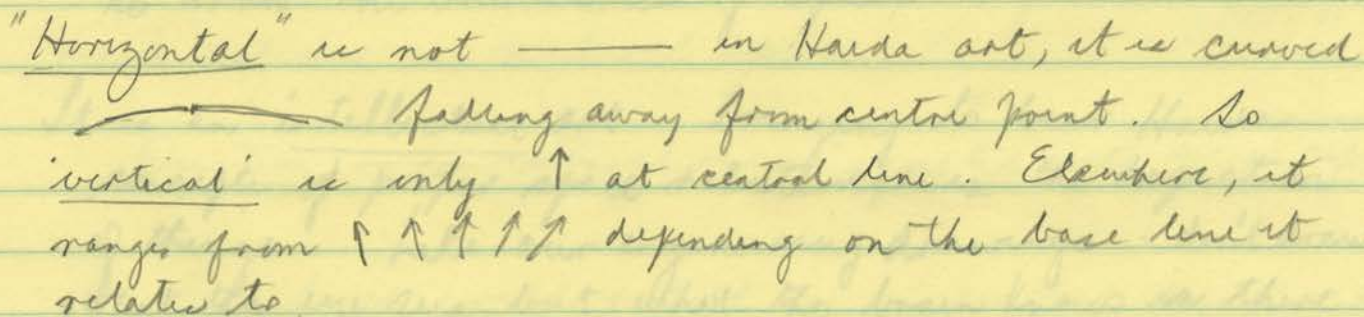 "Horizontal" is not —— in Haida art, it is curved
falling away from centre point. So
'vertical' is only ↑ at central line. Elsewhere, it
ranges from ↑ ↑ ↑ ↑ ↑ depending on the base line it
relates to